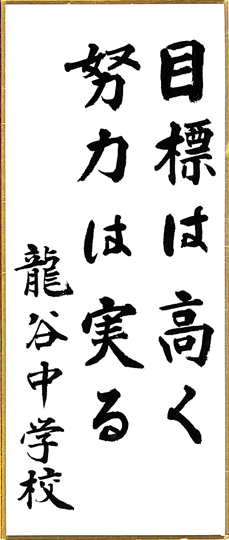 目標は高く
努力は実る
龍谷中学校